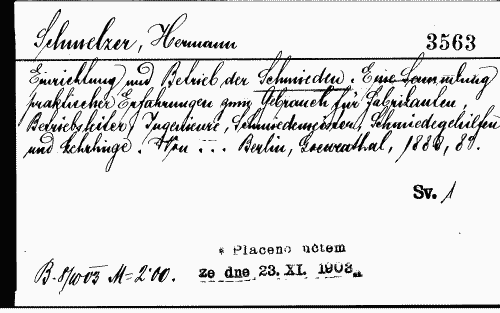 Schmelzer, Hermann 3563
Einrichtung und Betrieb der Schmieden. Eine Sammlung
praktischer Erfahrungen zum Gebrauch für Fabrikanten,
Betriebsleiter, Ingenieure, Schmiedemeister, Schmiedegehilfen
und Lehrlinge. Von ... Berlin, Loewenthal,
Sv. 1
* Placeno účtem
B. M = 2·00. ze dne 23. XI. 1903